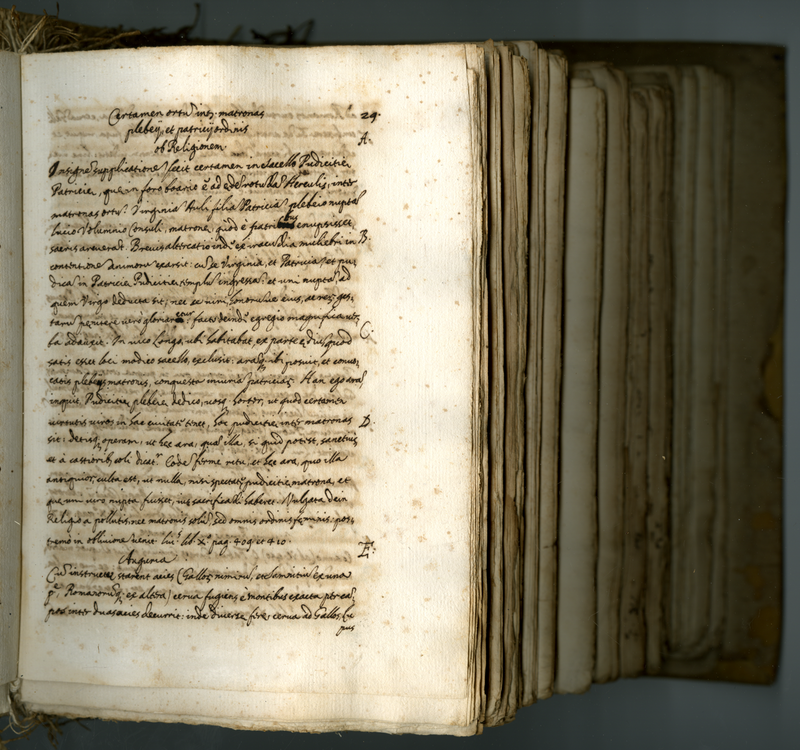 Certamen ortū inter matronas
29.
plebeij, et patricij ordinis
A.
ob Religionem.
Insignē supplicationē fecit certamen in sacello Pudicitiæ
Patriciæ, quæ in foro boario ē ad ædē rotūdā Herculis, inter
matronas ortū. Virginiā Auli filiā Patriciā plebeio nuptā
lucio Volumnio Consuli, matronæ, quod è patribus enupsisset,
sacris arcuerāt. Brevis altercatio indè ex iracūdia muliebri in
B.
contentionē animorū exarsit: cū se Virginia, et Patriciā et pu-
dicā in Patriciæ Pudicitiæ templū ingressā, et uni nuptā, ad
quem Virgo deducta sit, nec se viri, honorūve eius, ac rerū ges-
tarū pœnitere verò gloriaretur: facto deindè egregio magnificā ver-
ba adauxit. In vico Longo, ubi habitabat, ex parte ædiū, quod
C.
satis esset loci modico sacello, exclusit: aramq; ibi posuit, et convo-
catis plebeijs matronis, conquesta iniuriā patriciarū. Hanc ego arā
inquit, Pudicitiæ plebeiæ dedico, vosq; hortor, ut quod certamen
virtutis viros in hac civitate tenet, hoc pudicitiæ inter matronas
D.
sit: detisq; operam, ut hæc ara, quā illa, si quid potest, sanctius
et à castioribus coli dicatur. Eodē ferme ritu, et hæc ara, quo illa
antiquior, culta est, ut nulla, nisi spectatæ pudicitiæ matrona, et
quæ uni viro nupta fuisset, ius sacrificādi haberet. Vulgata dein
Religio à pollutis, nec matronis solū, sed omnis ordinis fœminis: pos-
tremò in oblivionē venit. liv. lib. Xº pag. 409 et 410.
E.
Auguria
Cū instructæ starent acies (Gallos nimirū, et Samnitiū ex una
pte, Romanorūq; ex altera) cerva fugiens è montibus exacta per cā-
pos inter duas acies decurrit: inde diversæ feræ: cerva ad Gallos, lu-
pus